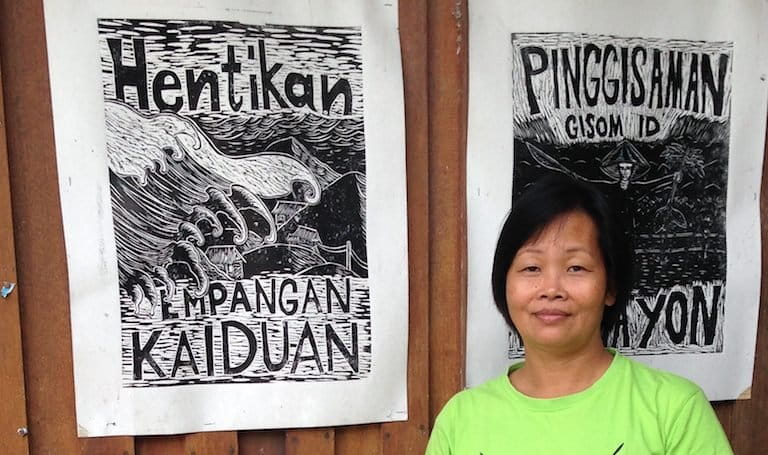 Hentikan
EMPANGAN
KAIDUAN
PINGGISAMAN
GISOM ID
AYON